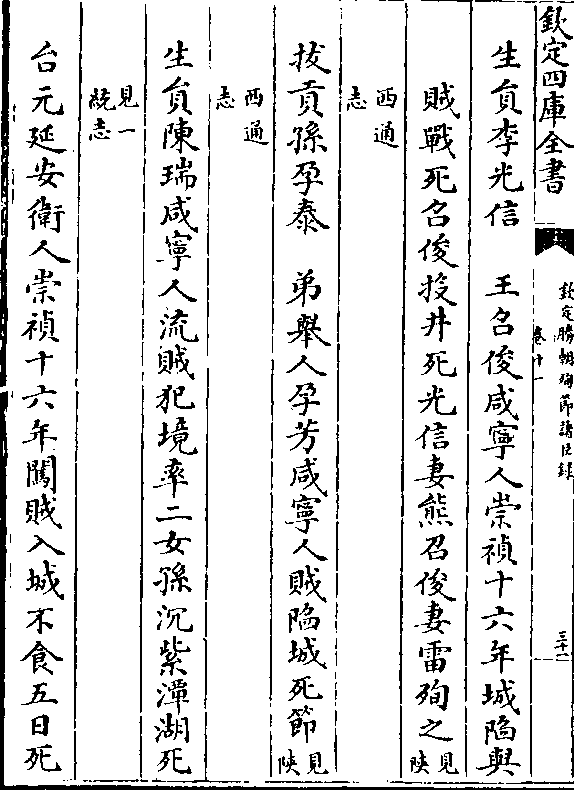 欽定四庫全書
欽定勝朝殉節諸臣錄
卷十一
三十一
生員李光信　王召俊咸寧人崇禎十六年城陷與
賊戰死召俊投井死光信妻熊召俊妻雷殉之見陝
西通志
拔貢孫孕泰　弟舉人孕芳咸寧人賊陷城死節見陝
西通志
生員陳瑞咸寧人流賊犯境率二女孫沉紫潭湖死
見一統志
台元延安衛人崇禎十六年闖賊入城不食五日死